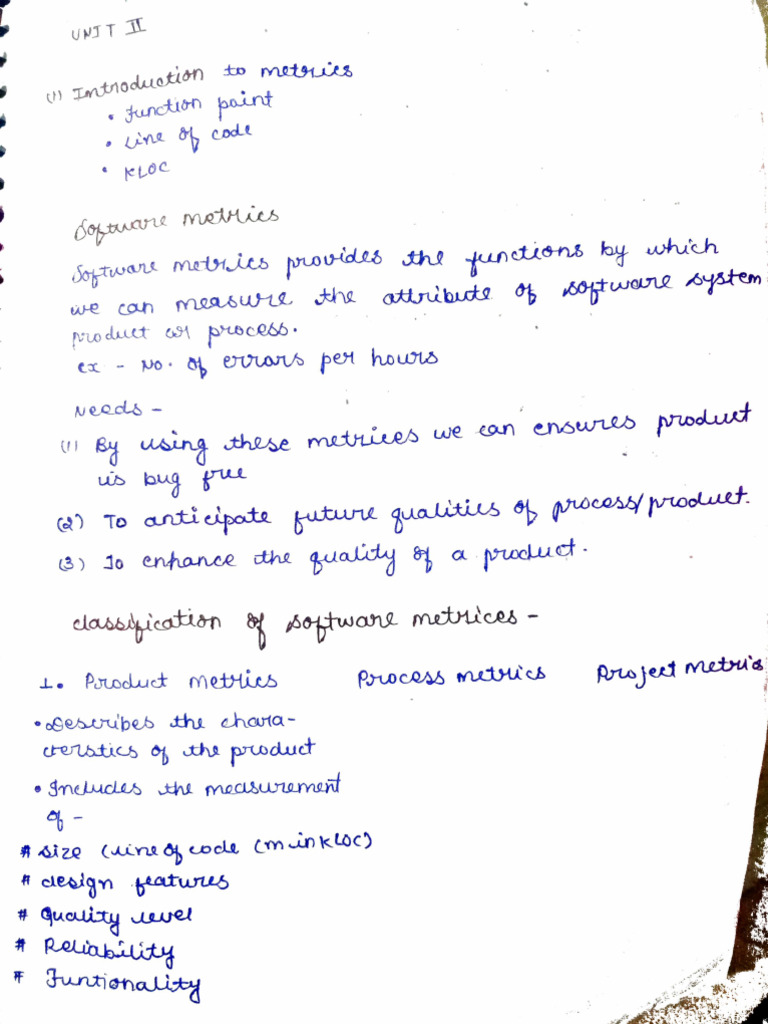 UNIT II
(1) Introduction to metrics
• Function point
• Line of code
• KLOC
Software metrics
Software metrics provides the functions by which
we can measure the attribute of software system
product or process.
ex - No. of errors per hours
Needs -
(1) By using these metrices we can ensures product
is bug free
(2) To anticipate future qualities of process/product.
(3) To enhance the quality of a product.
classification of software metrices -
1. Product metrics Process metrics Project metrics
• Describes the chara-
cterstics of the product
• Includes the measurement
of -
# size (line of code (m in KLOC)
# design features
# Quality level
# Reliability
# Funtionality